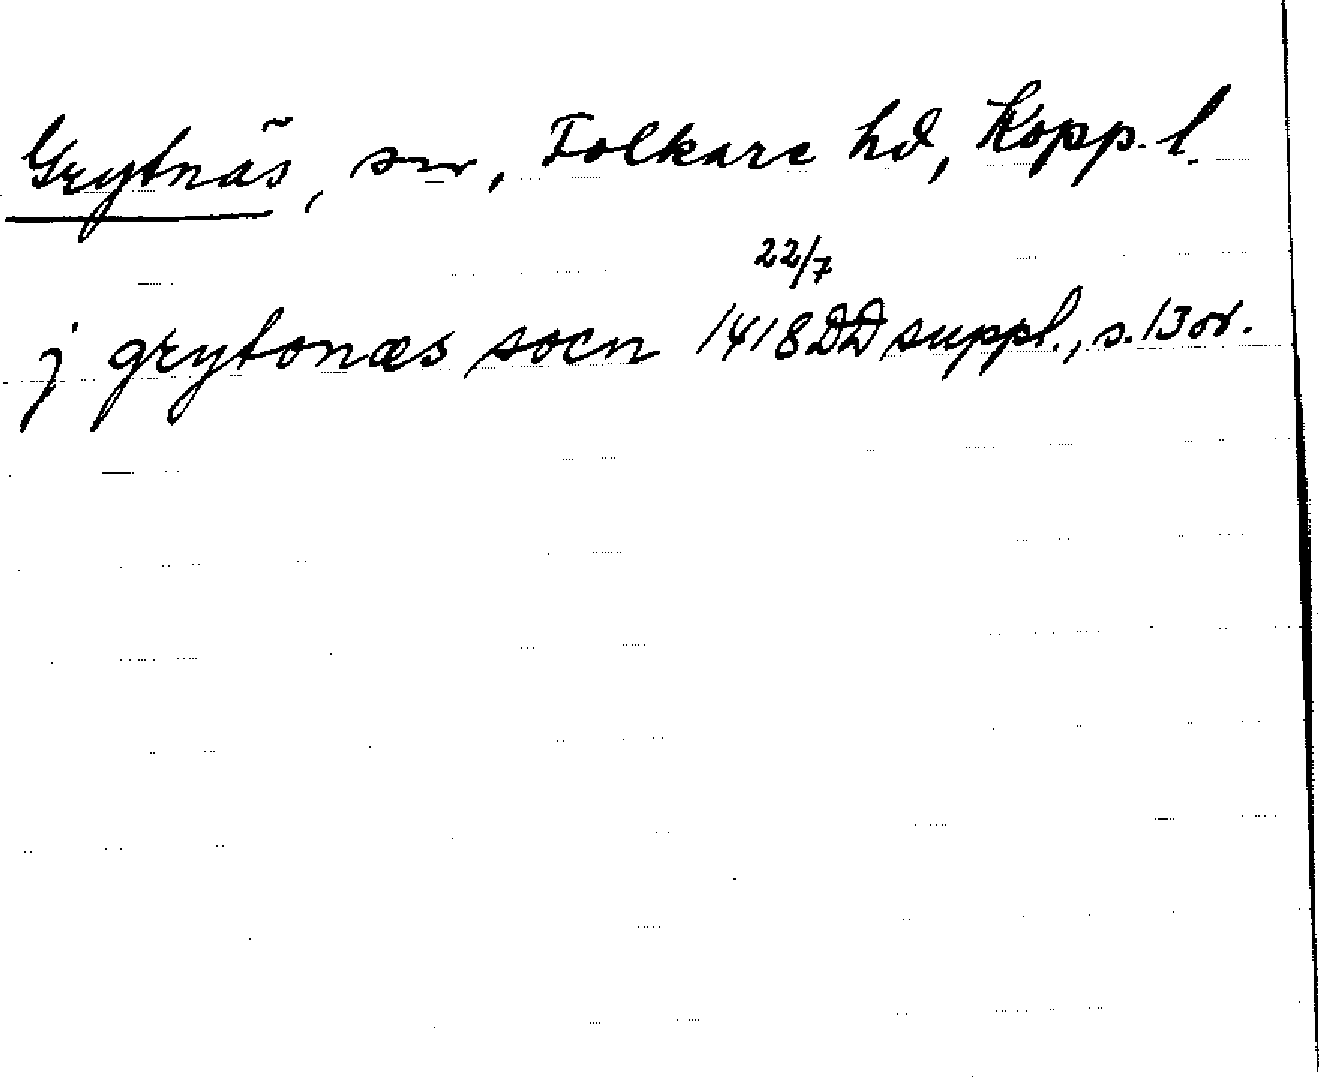 Grytnäs, sn, Folkare hd, Kopp. l.
22/7
j grytonæs socn 1418 DD suppl., s. 13 or.